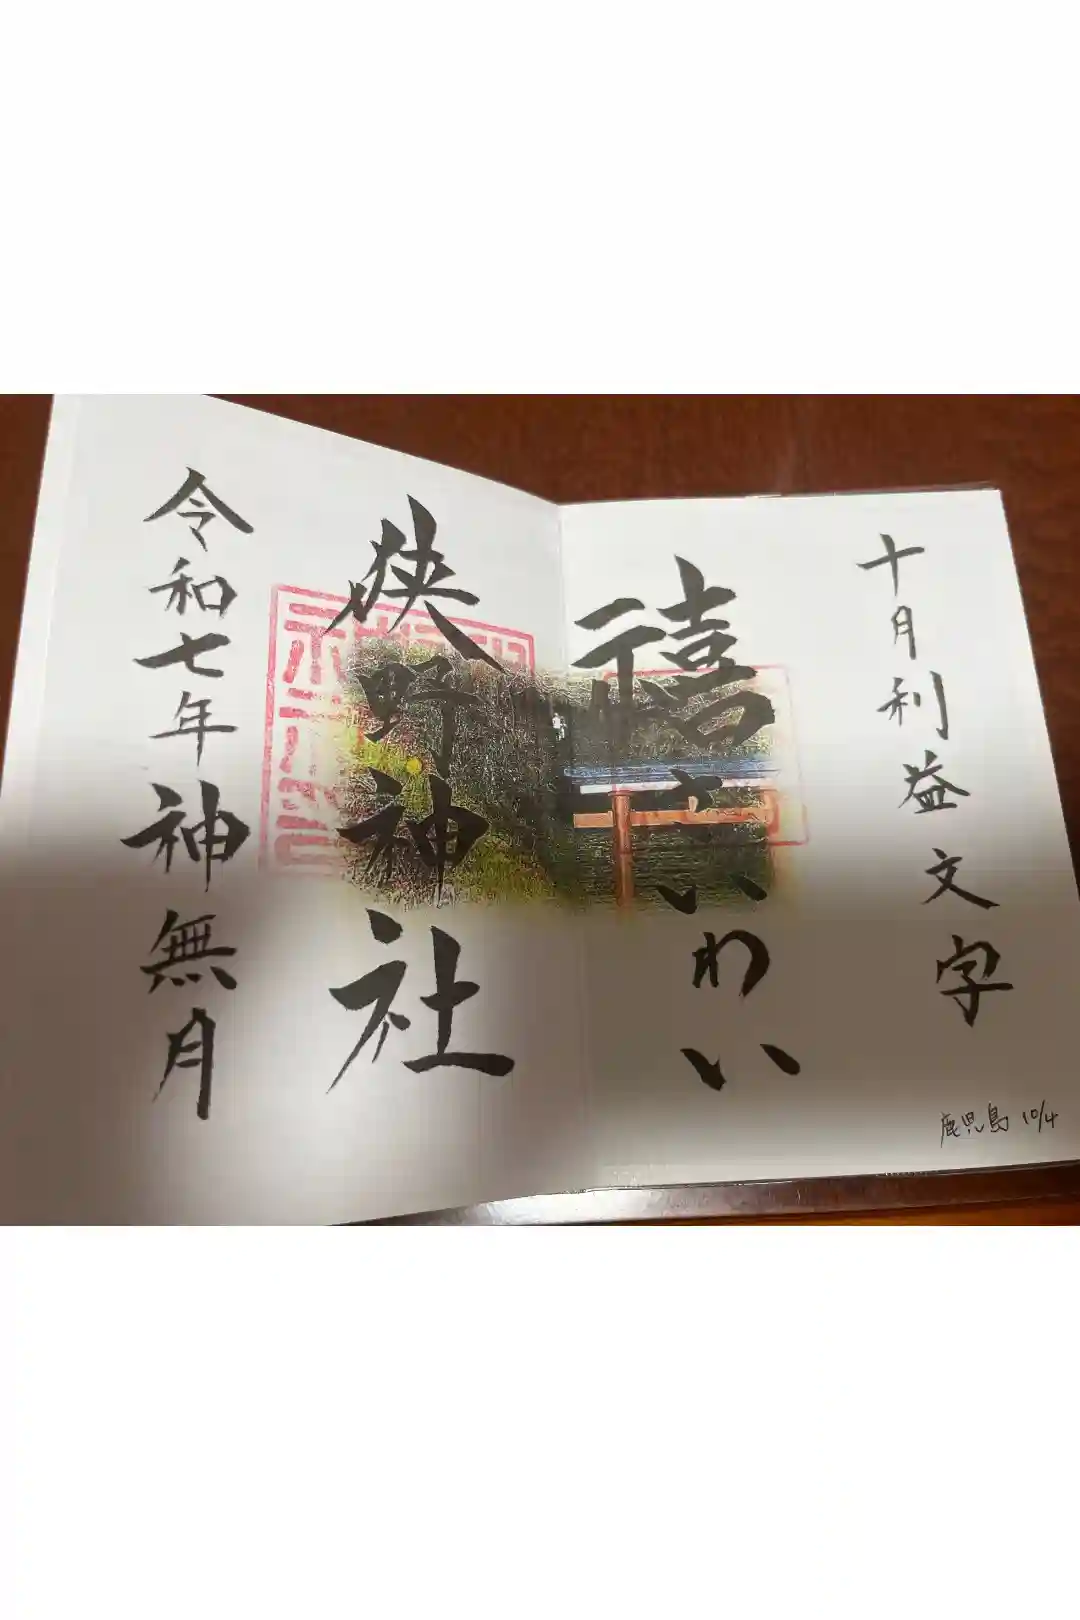 十月利益文字
禧さいわい
狭野神社
令和七年神無月
鹿児島 10/4